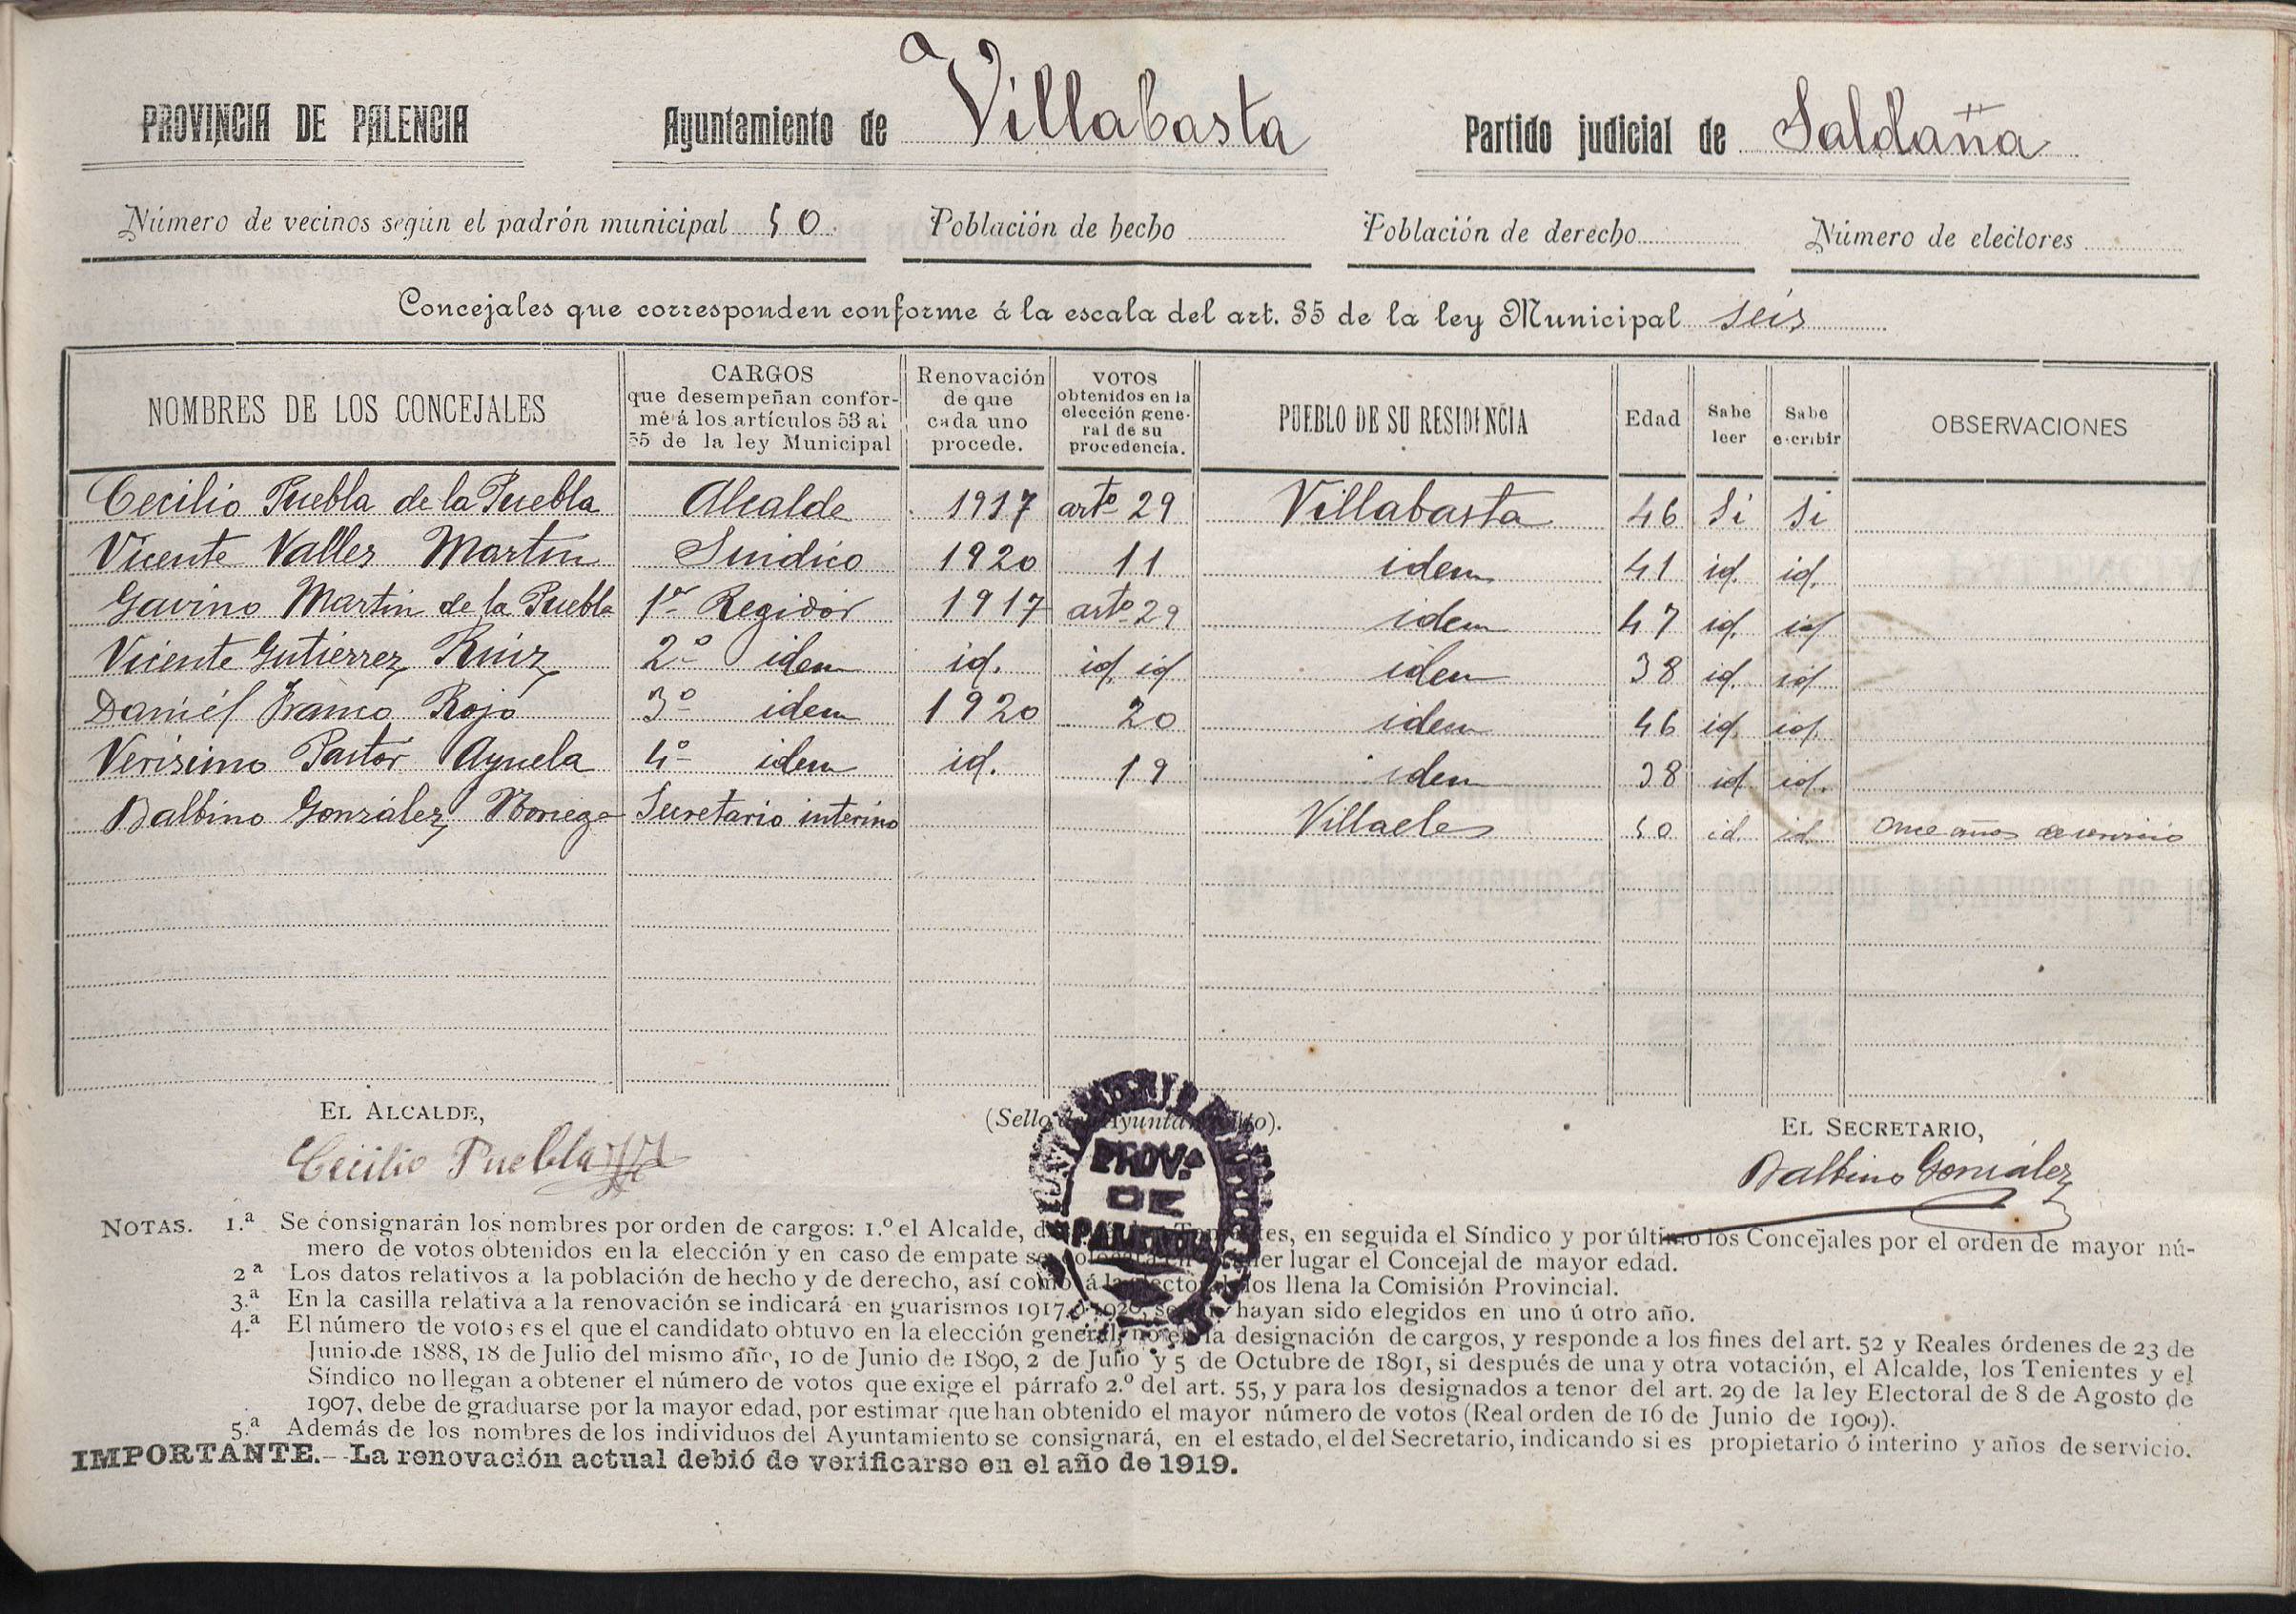 a
PROVINCIA DE PALENCIA Ayuntamiento de Villabasta Partido judicial de Saldaña
Número de vecinos según el padrón municipal 50 Población de hecho Población de derecho Número de electores
Concejales que corresponden conforme á la escala del art. 35 de la ley Municipal seis
NOMBRES DE LOS CONCEJALES CARGOS que desempeñan conforme á los artículos 53 al 55 de la ley Municipal Renovación de que cada uno procede. VOTOS obtenidos en la elección general de su procedencia. PUEBLO DE SU RESIDENCIA Edad Sabe leer Sabe escribir OBSERVACIONES
Cecilio Puebla de la Puebla Alcalde 1917 artº 29 Villabasta 46 Si Si
Vicente Valles Martin Sindico 1920 11 idem 41 id. id.
Gavino Martin de la Puebla 1er Regidor 1917 artº 29 idem 47 id. id
Vicente Gutiérrez Ruiz 2º idem id. id id idem 38 id. id
Daniel Franco Rojo 3º idem 1920 20 idem 46 id. id.
Verisimo Pastor Ayuela 4º idem id. 19 idem 38 id id.
Balbino González Noriega Secretario interino Villaeles 50 id. id. Once años de servicio
EL ALCALDE, (Sello del Ayuntamiento). EL SECRETARIO,
Cecilio Puebla Balbino González
PROV.A
DE
PALENCIA
NOTAS. 1.ª Se consignarán los nombres por orden de cargos: 1.º el Alcalde, en seguida el Síndico y por último los Concejales por el orden de mayor nú-
mero de votos obtenidos en la elección y en caso de empate se lugar el Concejal de mayor edad.
2ª Los datos relativos a la población de hecho y de derecho, así como á la los llena la Comisión Provincial.
3.ª En la casilla relativa a la renovación se indicará en guarismos 1917 ó 1920, según hayan sido elegidos en uno ú otro año.
4.ª El número de votos es el que el candidato obtuvo en la elección general, no en la designación de cargos, y responde a los fines del art. 52 y Reales órdenes de 23 de
Junio de 1888, 18 de Julio del mismo año, 10 de Junio de 1890, 2 de Julio y 5 de Octubre de 1891, si después de una y otra votación, el Alcalde, los Tenientes y el
Síndico no llegan a obtener el número de votos que exige el párrafo 2.º del art. 55, y para los designados a tenor del art. 29 de la ley Electoral de 8 de Agosto de
1907, debe de graduarse por la mayor edad, por estimar que han obtenido el mayor número de votos (Real orden de 16 de Junio de 1909).
5.ª Además de los nombres de los individuos del Ayuntamiento se consignará, en el estado, el del Secretario, indicando si es propietario ó interino y años de servicio.
IMPORTANTE.--La renovación actual debió de verificarse en el año de 1919.